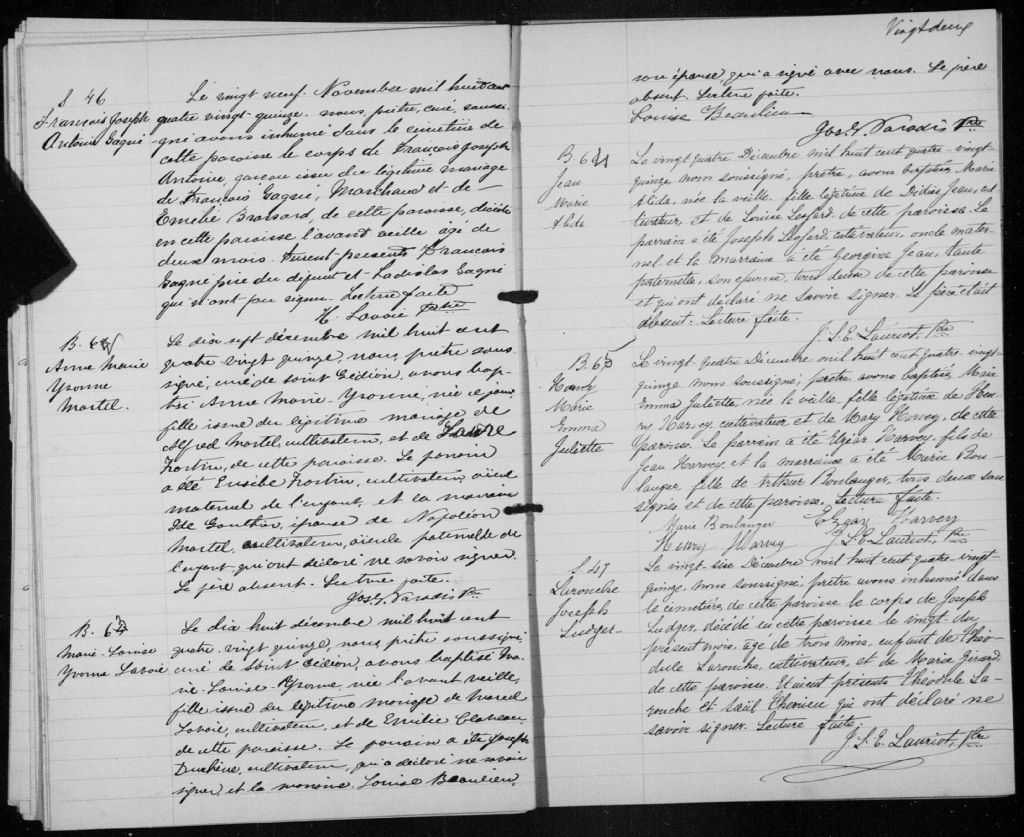 S 46
François Joseph
Antoine Gagné
Le vingt neuf Novembre mil huit cent
quatre vingt-quinze, nous, prêtre, curé, soussi-
gné avons inhumé dans le cimetière de
cette paroisse le corps de François Joseph
Antoine, garçon issu du légitime mariage
de François Gagné, Marchand et de
Emelie Brassard, de cette paroisse, décédé
en cette paroisse l'avant veille agé de
deux mois. Furent présents François
Gagné père du défunt et Ladislas Gagné
qui n'ont pu signer. Lecture faite
H. Lavoie Ptre
B. 62
Anne Marie
Yvonne
Martel.
Le dix sept décembre mil huit cent
quatre vingt quinze, nous, prêtre sous-
signé, curé de Saint Gédéon, avons bap-
tisé Anne Marie-Yvonne, née ce jour
fille issue du légitime mariage de
Alfred Martel, cultivateur, et de Laure
Fortin, de cette paroisse. Le parrain
a été Eusèbe Fortin, cultivateur, aïeul
maternel de l'enfant, et la marraine
Ide Gauthier, épouse de Napoléon
Martel, cultivateur, aïeule paternelle de
l'enfant, qui ont déclaré ne savoir signer.
Le père absent. Lecture faite.
Jos. Paradis Ptre
B. 63
Marie-Louise
Yvonne Lavoie
Le dix huit décembre mil huit cent
quatre-vingt quinze, nous prêtre soussigné
curé de Saint Gédéon, avons baptisé Ma-
rie-Louise-Yvonne, née l'avant veille,
fille issue du légitime mariage de
Lavoie, cultivateur, et de Emilie Claveau,
de cette paroisse. Le parrain a été Joseph
Duchêne, cultivateur, qui a déclaré ne savoir
signer, et la marraine Louise Beaulieu,
Vingt deux
son épouse, qui a signé avec nous. Le père
absent. Lecture faite.
Louise Beaulieu
Jos. Paradis Ptre
B 64
Jean
Marie
Alida
Le vingt quatre Décembre mil huit cent quatre-vingt-
quinze nous soussigné, prêtre, avons baptisé Marie
Alida, née la veille, fille légitime de Didier Jean, cul-
tivateur, et de Louise Lespard, de cette paroisse. Le
parrain a été Joseph Lespard, cultivateur, oncle mater-
nel et la marraine a été Georgina Jean, tante
paternelle, son épouse, tous deux de cette paroisse
et qui ont déclaré ne savoir signer. Le père était
absent. Lecture faite.
J. L. E. Lauriot, Ptre
B. 65
Harvey
Marie
Emma
Juliette
Le vingt-quatre Décembre mil huit cent quatre-vingt-
quinze nous soussigné, prêtre avons baptisé Marie
Emma Juliette née la veille, fille légitime de Hen-
ry Harvey, cultivateur et de Mary Harvey, de cette
paroisse. Le parrain a été Elzéar Harvey, fils de
Jean Harvey, et la marraine a été Marie Bou-
langer, fille de Arthur Boulanger, tous deux sous
signés et de cette paroisse. Lecture faite.
Marie Boulanger Elzéar Harvey
Henry Harvey J. L. E. Lauriot, Ptre
S. 47
Larouche
Joseph
Ludger
Le vingt-six Décembre mil huit cent quatre vingt
quinze, nous soussigné, prêtre avons inhumé dans
le cimetière de cette paroisse le corps de Joseph
Ludger, décédé en cette paroisse le vingt du
présent mois, âgé de trois mois, enfant de Théo-
dule Larouche, cultivateur, et de Marie Girard,
de cette paroisse. Etaient présents Théodule La-
rouche et qui ont déclaré ne
savoir signer. Lecture faite.
J. L. E. Lauriot, Ptre